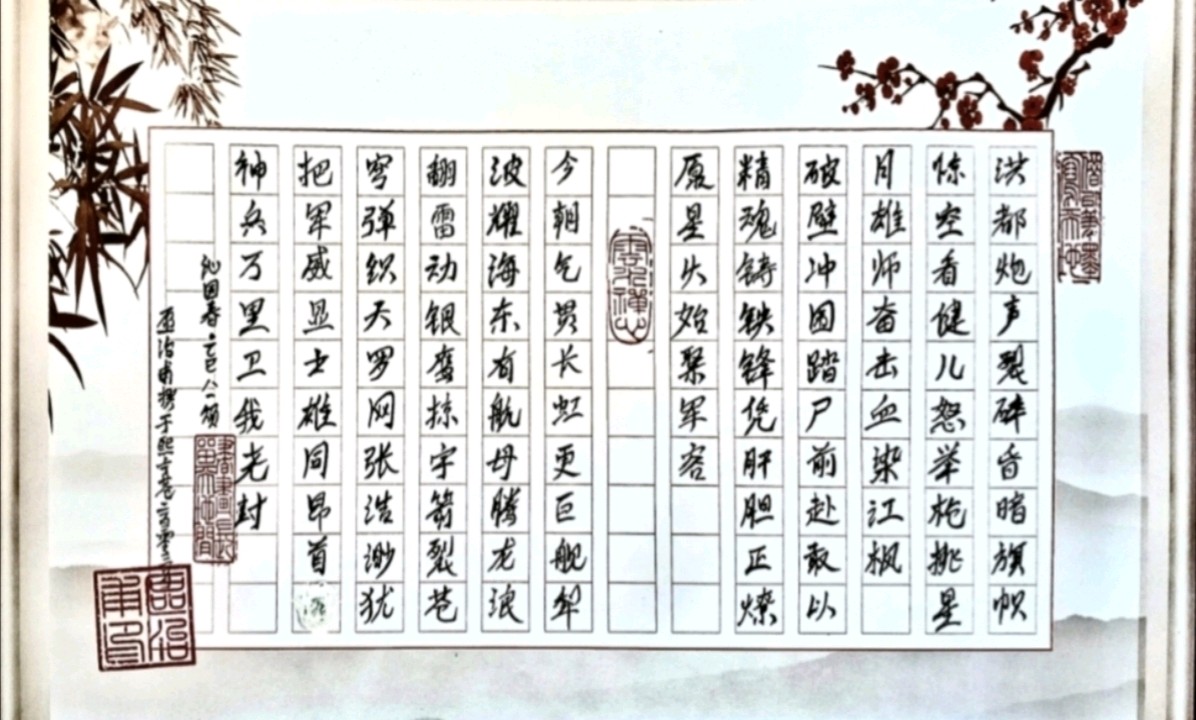 洪都炮声裂碎昏暗旗帜
惊空看健儿怒举枪挑星
月雄师奋击血染江枫
破壁冲围踏尸前赴敢以
精魂铸铁锋凭肝胆正燎
原星火始聚军容
今朝气贯长虹更巨舰犁
波耀海东有航母腾龙浪
翻雷动银鹰掠宇箭裂苍
穹弹织天罗网张浩渺犹
把军威显士雄同昂首
神兵万里卫我尧封
沁园春·乙巳八一颂
治甫撰于熙